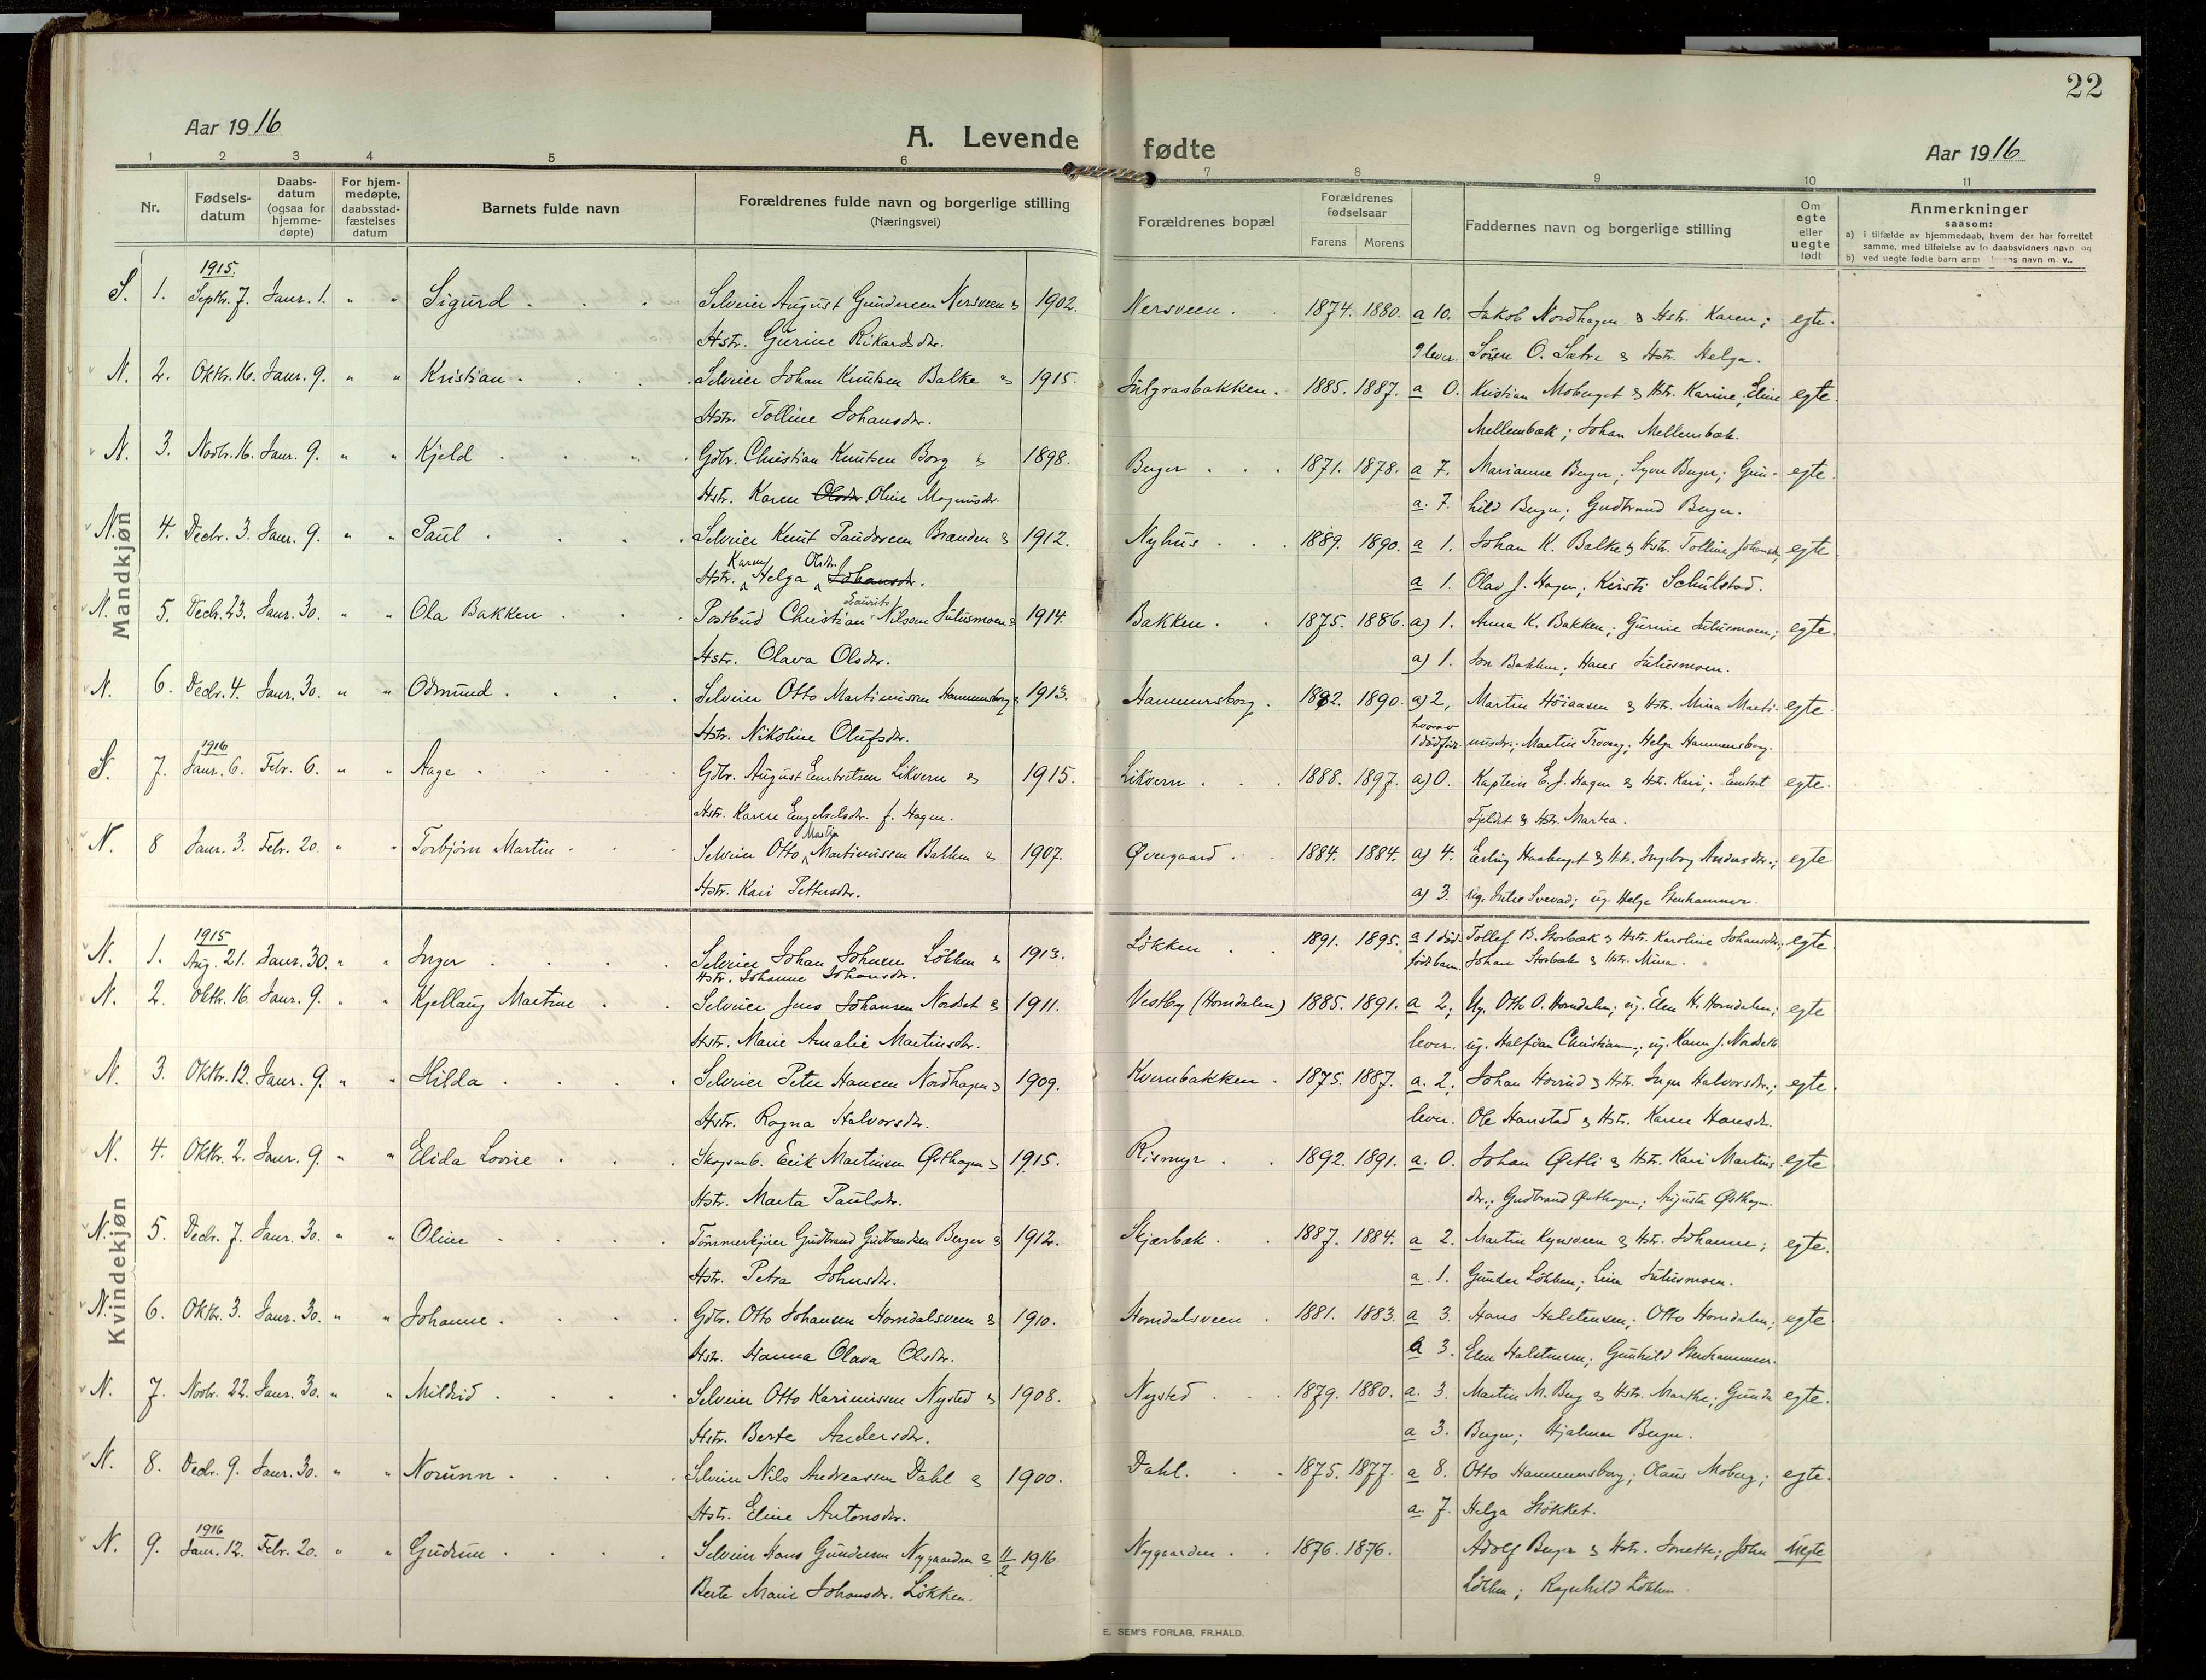 22
Aar 1916
A. Levende fødte
Aar 1916
1 2 3 4 5 6 7 8 9 10 11
Nr.
Fødsels-
datum
Daabs-
datum
(ogsaa for
hjemme-
døpte)
For hjem-
medøpte,
daabsstad-
fæstelses
datum
Barnets fulde navn
Forældrenes fulde navn og borgerlige stilling
(Næringsvei)
Forældrenes bopæl
Forældrenes
fødselsaar
Farens Morens
Faddernes navn og borgerlige stilling
Om
egte
eller
uegte
født
Anmerkninger
saasom:
a) i tilfælde av hjemmedaab, hvem der har forrettet
samme, med tilføielse av to daabsvidners navn og
b) ved uegte fødte barn navn m. v..
Mandkjøn
1915.
S. 1. Septbr. 7. Janr. 1. " " Sigurd Selveier August Gundersen Nersveen & 1902. Nersveen 1874. 1880. a 10. Jakob Nordhagen & Hstr. Karen; egte.
Hstr. Gurine Rikardsdtr. 9 lever. Søren O. Sætre & Hstr. Helga.
N. 2. Oktbr. 16. Janr. 9. " " Kristian Selveier Johan Knutsen Balke & 1915. Julgrasbakken. 1885. 1887. a 0. Kristian Moberget & Hstr. Karine; Eline egte.
Hstr. Tolline Johansdtr. Mellembæk; Johan Mellembæk.
N. 3. Novbr. 16. Janr. 9. " " Kjeld Gdbr. Christian Knutsen Borg & 1898. Berger 1871. 1878. a 7. Marianne Berger; Syver Berger; Gun- egte.
Hstr. Karen Olsdtr. Oline Magnusdtr. a. 7. hild Berger; Gudbrand Berger.
N. 4. Decbr. 3. Janr. 9. " " Paul Selveier Knut Braenden & 1912. Nyhus 1889. 1890. a 1. Johan K. Balke & Hstr. Tolline Johansdtr; egte.
Karen Olsdtr.
Hstr. Helga Johansdtr. a 1. Olav J. Hagen; Kersti Schulstad.
Laurits
N. 5. Decbr. 23. Janr. 30. " " Ola Bakken Postbud Christian Nilsen Juliusmoen & 1914. Bakken 1875. 1886. a) 1. Anna K. Bakken; Gurine Juliusmoen; egte.
Hstr. Olava Olsdtr. a) 1. Jon Bakken; Hans Juliusmoen.
N. 6. Decbr. 4. Janr. 30. " " Odmund Selveier Otto Martinussen Hammersborg & 1913. Hammersborg 1892. 1890. a) 2, Martin Høiaasen & Hstr. Mina Marti- egte.
Hstr. Nikoline Olufsdtr. hvorav 1 dødfød. nusdtr.; Martin Trovaag; Helga Hammersborg.
1916
S. 7. Janr. 6. Febr. 6. " " Aage Gdbr. August Embretsen Likvern & 1915. Likvern 1888. 1897. a) 0. Kaptein E. J. Hagen & Hstr. Kari; Embret egte.
Hstr. Karen Engebretsdtr. f. Hagen. Fjeldet & Hstr. Martea.
Martin
N. 8 Janr. 3. Febr. 20. " " Torbjørn Martin Selveier Otto Martinussen Bakken & 1907. Øvergaard 1884. 1884. a) 4. Erling Haaberget & Hstr. Ingeborg Andersdtr.; egte
Hstr. Kari Pettersdtr. a) 3. ug. Julie Svevad; ug. Helge Stenhammer.
Kvindekjøn
1915
N. 1. Aug. 21. Janr. 30. " " Inger Selveier Johan Johnsen Løkken & 1913. Løkken 1891. 1895. a 1 død- Tollef B. Storbæk & Hstr. Karoline Johansdtr.; egte.
Hstr. Johanne Johansdtr. født barn. Johan Storbæk & Hstr. Mina.
N. 2. Oktbr. 16. Janr. 9. " " Kjellaug Martine Selveier Jens Johansen Nordset & 1911. Vestby (Horndalen) 1885. 1891. a 2; Ug. Otto O. Horndalen; ug. Elen H. Horndalen; egte
Hstr. Marie Amalie Martinsdtr. lever. ug. Halfdan Christians.; ug. Karen J. Nordseth.
N. 3. Oktbr. 12. Janr. 9. " " Hilda Selveier Peter Hansen Nordhagen & 1909. Kvernbakken 1875. 1887. a. 2; Johan Hovrud & Hstr. Inger Halvorsdtr.; egte.
Hstr. Ragna Halvorsdtr. lever. Ole Hanstad & Hstr. Karen Hansdtr.
N. 4. Oktbr. 2. Janr. 9. " " Elida Lovise Skogsarb. Erik Martinsen Østhagen & 1915. Rismyr 1892. 1891. a. 0. Johan Østli & Hstr. Kari Martins- egte
Hstr. Marta Paulsdtr. dtr.; Gudbrand Østhagen; Augusta Østhagen.
N. 5. Decbr. 7. Janr. 30. " " Oline Tømmerkjører Gudbrand Gudbrandsen Berger & 1912. Skjærbæk 1887. 1884. a 2. Martin Kynsveen & Hstr. Johanne; egte.
Hstr. Petra Johnsdtr. a. 1. Gunder Løkken; Lina Juliusmoen.
N. 6. Oktbr. 3. Janr. 30. " " Johanne Gdbr. Otto Johansen Horndalsveen & 1910. Horndalsveen 1881. 1883. a 3. Hans Halstensen; Otto Horndalen; egte
Hstr. Hanna Olava Olsdtr. a 3. Elen Halstensen; Gunhild Stenhammer.
N. 7. Novbr. 22. Janr. 30. " " Mildrid Selveier Otto Karinussen Nysted & 1908. Nysted 1879. 1880. a. 3. Martin M. Berg & Hstr. Marthe; Gunda egte.
Hstr. Berte Andersdtr. a 3. Berger; Hjalmar Berger.
N. 8. Decbr. 9. Janr. 30. " " Norunn Selveier Nils Andreassen Dahl & 1900. Dahl. 1875. 1877. a 8. Otto Hammersborg; Olaus Moberg; egte.
Hstr. Eline Antonsdtr. a. 7. Helga Støkket.
1916
N. 9. Janr. 12. Febr. 20. " " Gudrun Selveier Hans Gundersen Nygaarden & 11/2 1916 Nygaarden 1876. 1876. Adolf Berger & Hstr. Jonette; John uegte
Berte Marie Johansdtr. Løkken. Løkken; Ragnhild Løkken.
E. SEM'S FORLAG, FR.HALD.